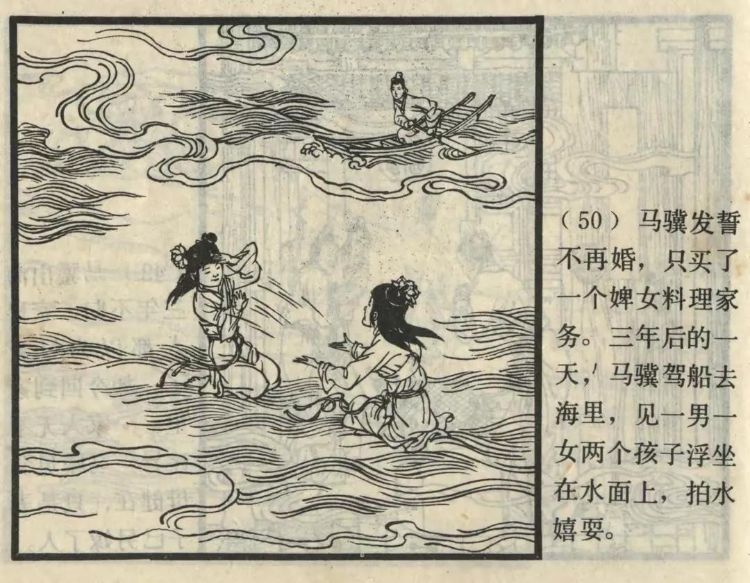 （50）马骥发誓
不再婚，只买了
一个婢女料理家
务。三年后的一
天，马骥驾船去
海里，见一男一
女两个孩子浮坐
在水面上，拍水
嬉耍。